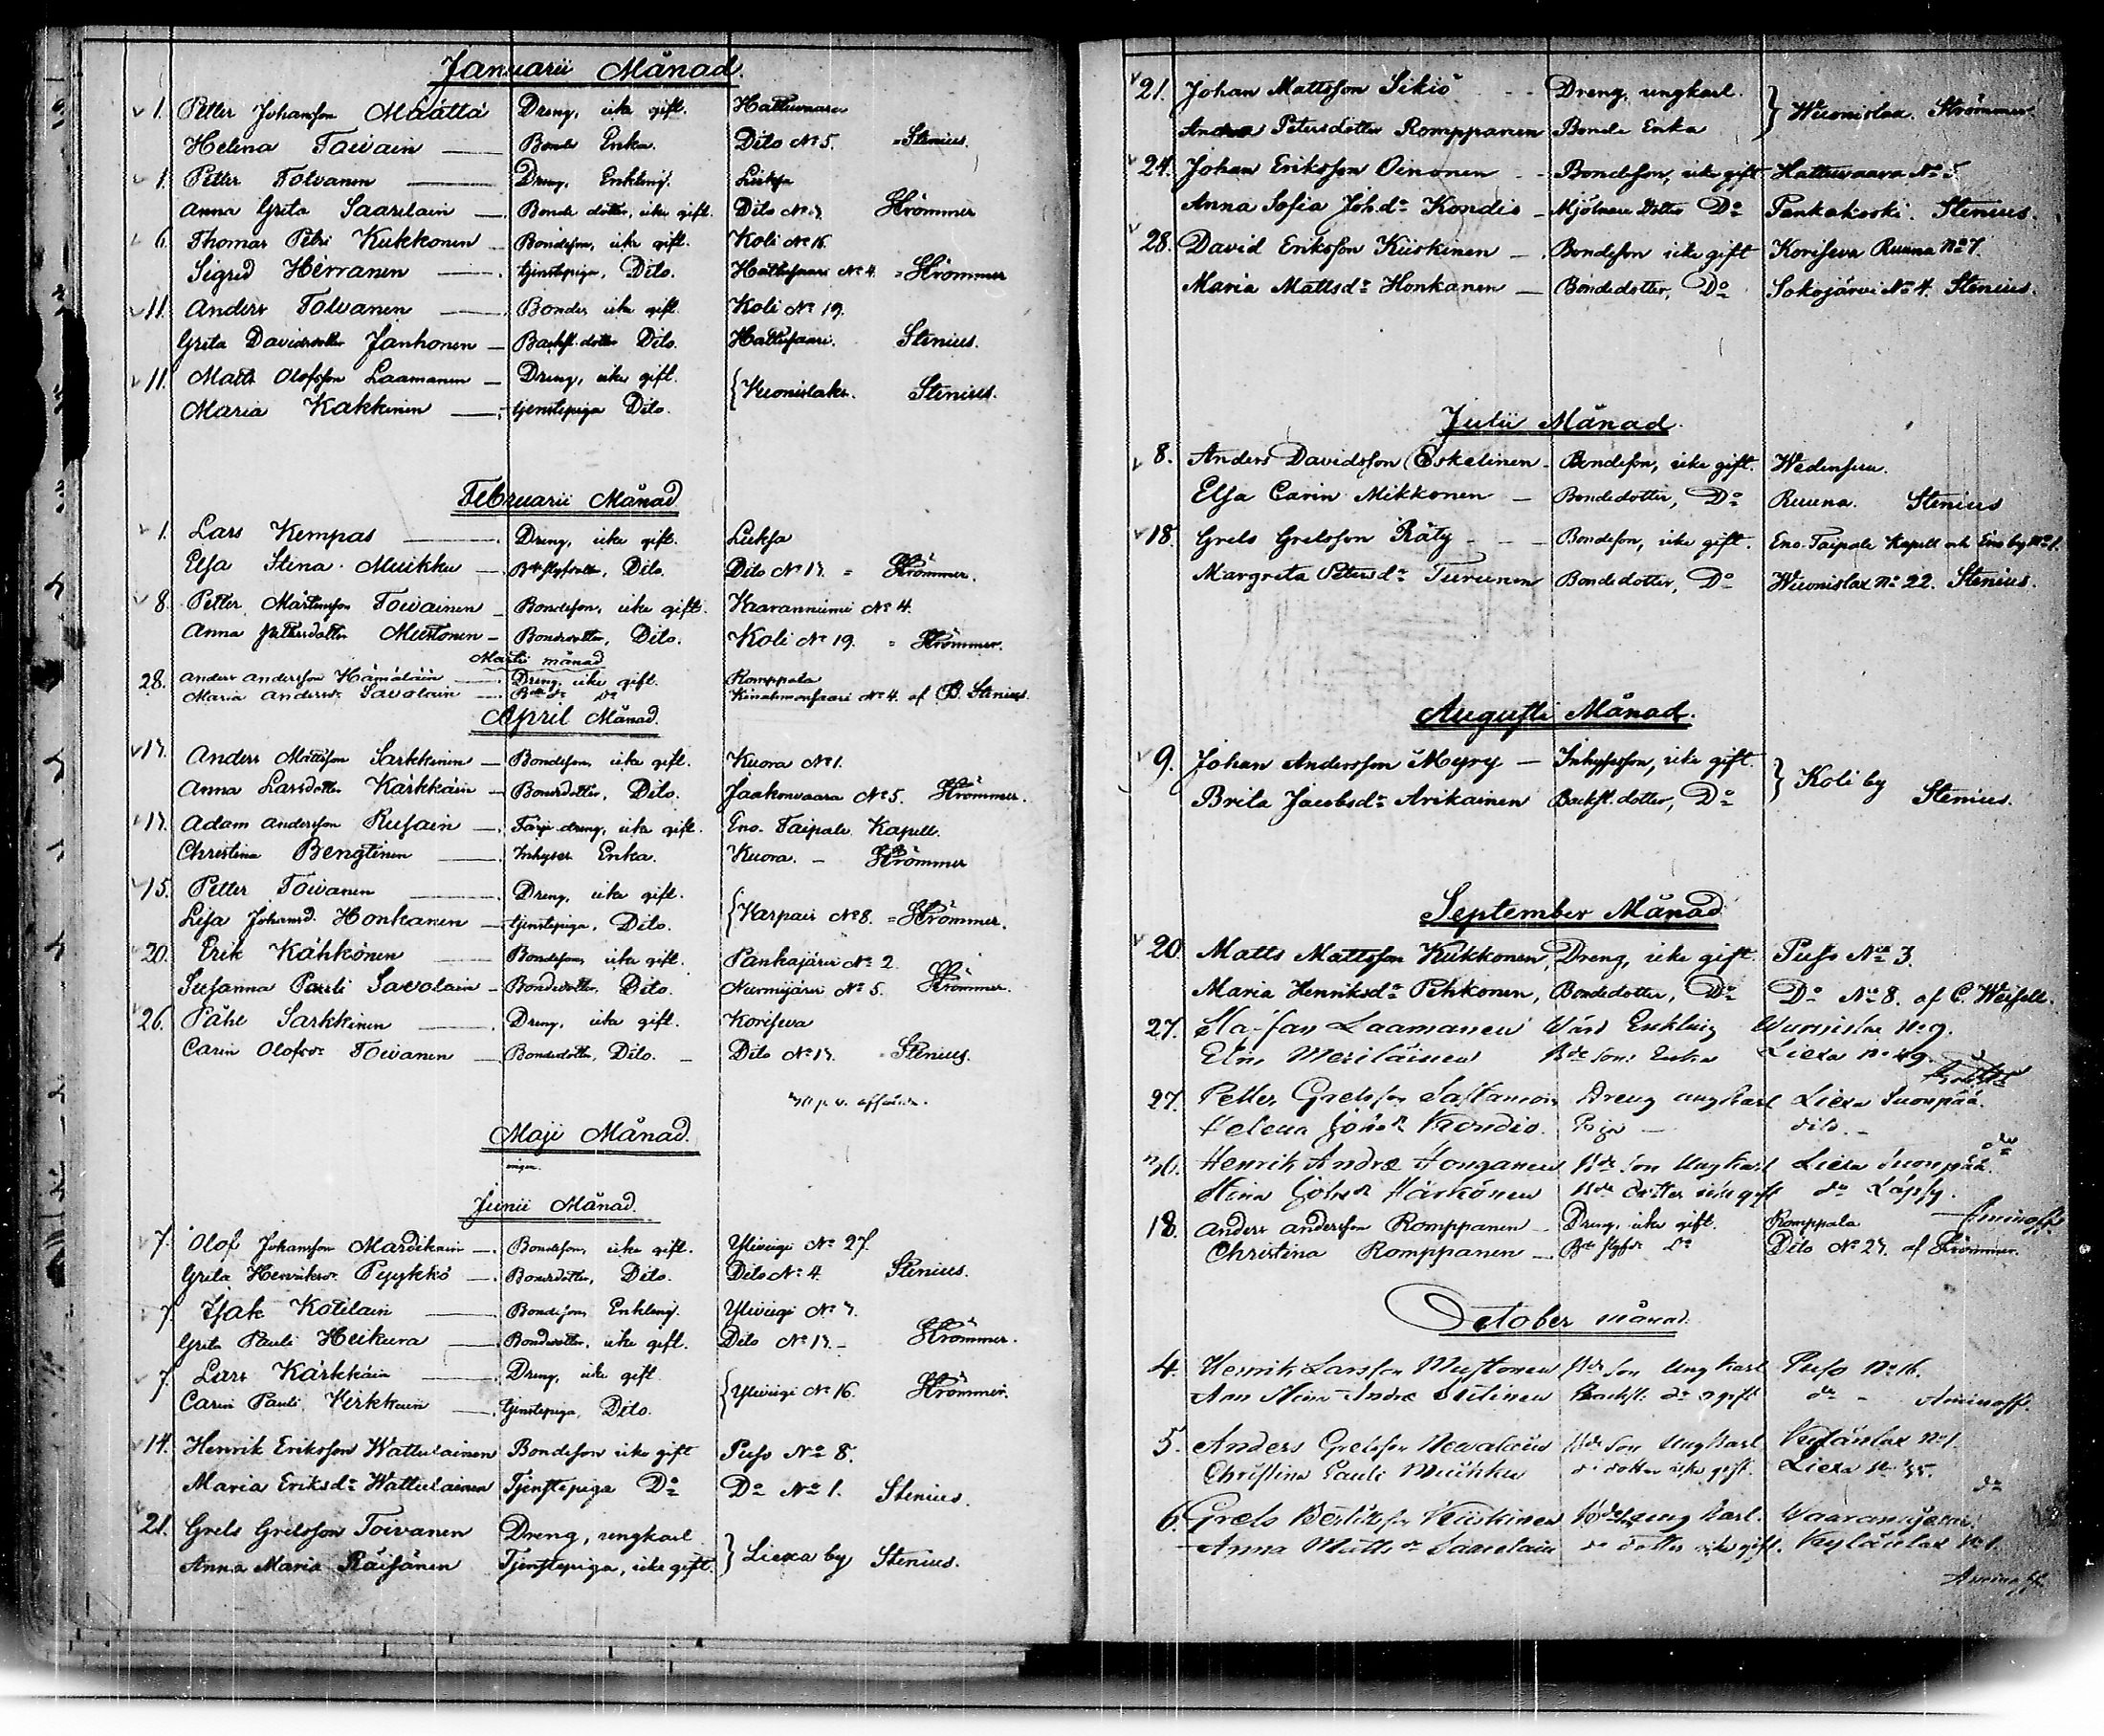 Januarii Månad.
1. Petter Johansson Määttä Dreng, icke gift. Hattuwaara
Helena Toivain Bonde Enka. Dito No 5. Stenius.
1. Petter Tolvanen Dreng, Enkling. Lieksa
Anna Greta Saarelain Bonde dotter, icke gift. Dito No 7. Strömmer
6. Thomas Petri Kukkonen Bondeson, icke gift. Koli No 16.
Sigred Herranen tjenstepiga, Dito. Hattusaari No 4. Strömmer
11. Anders Tolvanen Bonde, icke gift. Koli No 19.
Greta Davidsdotter Janhonen Backst. dotter Dito. Hattusaari. Stenius.
11. Matts Olofsson Laamanen Dreng, icke gift.
Maria Kakkinen tjenstepiga Dito. Wuonislaks. Stenius.
Februarii Månad
1. Lars Kempas Dreng, icke gift. Lieksa
Elsa Stina Muikku Dito. Dito No 17. Strömmer.
8. Petter Mårtensson Toivainen Bondeson, icke gift. Kaaranniemi No 4.
Anna Pettersdotter Mustonen Bondedotter, Dito. Koli No 19. Strömmer.
Martii månad
28. Anders Andersson Hämäläin Dreng, icke gift. Romppala
Maria Andersdr Savolain Bde dr Do Kinahmonsaari No 4. af B. Stenius.
April Månad.
17. Anders Mattsson Sarkkinen Bondeson, icke gift. Kuora No 1.
Anna Larsdotter Kärkkäin Bondedotter, Dito. Jaakonvaara No 5. Strömmer.
17. Adam Andersson Rusain dreng, icke gift. Eno Taipale Kapell.
Christina Bengtinen Inhyses Enka. Kuora. Strömmer
15. Petter Toivanen Dreng, icke gift.
Lisa Johansd. Honkanen tjenstepiga, Dito. Karpais No 8. Strömmer.
20. Erik Kähkönen Bondeson, icke gift. Pankajärvi No 2.
Susanna Pauli Savolain Bondedotter, Dito. Nurmijärvi No 5. Strömmer.
26. Påhl Sarkkinen Dreng, icke gift. Koriseva
Carin Olofsdr Toivanen Bondedotter, Dito. Dito No 17. Stenius.
Maji Månad.
ingen.
Junii Månad.
7. Olof Johansson Mardikain Bondeson, icke gift. Ylivieyi No 27.
Greta Henriksdr Pyykkö Bondedotter, Dito. Dito No 4. Stenius.
7. Isak Kotilain Bondeson, Enkling. Ylivieyi No 7.
Greta Pauli Heikura Bondedotter, icke gift. Dito No 17. Strömmer.
7. Lars Kärkkäin Dreng, icke gift
Carin Pauli Kirkkain tjenstepiga, Dito. Ylivieyi No 16. Strömmer.
14. Henrik Eriksson Wattulainen Bondeson icke gift Puso No 8.
Maria Eriksdr Wattulainen Tjenstepiga Do Do No 1. Stenius.
21. Grels Grelsson Toivanen Dreng, ungkarl
Anna Maria Räisänen Tjenstepiga, icke gift. Liexa by Stenius.
21. Johan Mattsson Sikiö Dreng, ungkarl.
Petersdotter Romppanen Bonde Enka Wuonislax. Strömmer
24. Johan Eriksson Oinonen Bondeson, icke gift Hattuvaara No 5.
Anna Sofia Joh.dr Kondio Mjölnare dotter Do Pankakoski. Stenius.
28. David Eriksson Kiiskinen Bondeson icke gift Koriseva Ruuna No 7.
Maria Mattsdr Honkanen Bondedotter, Do Sokojärvi No 4. Stenius.
Julii Månad.
8. Anders Davidsson Eskelinen Bondeson, icke gift. Wedensuu.
Elsa Carin Mikkonen Bondedotter, Do Ruuna. Stenius
18. Grels Grelsson Räty Bondeson, icke gift. Eno Taipale Kapell och Eno by No 1.
Margreta Petersdr Turunen Bondedotter, Do Wuonislax No 22. Stenius.
Augusti Månad.
9. Johan Andersson Myry Inhyseson, icke gift.
Brita Jacobsdr Arikainen Backst. dotter, Do Koli by Stenius.
September Månad
20. Matts Mattsson Kukkonen, Dreng, icke gift. Puso No 3.
Maria Henriksdr Pehkonen, Bondedotter, Do Do No 8. af C. Weisell.
27. Staffan Laamanen Enkling Wuonislax No 9.
Elin Meriläinen Enka Liexa No 49.
27. Petter Grelsson Sastamoin Dreng ungkarl Liexa Suonpää.
Helena Kondio. Piga dito.
30. Henrik Andr. Honganen Bde son Ungkarl Liexa Suonpää. do
Stina Joh.dr Härkönen Bde dotter icke gift do Aminoff
18. Anders Andersson Romppanen Dreng, icke gift. Romppala
Christina Romppanen Do Dito No 27. af Strömmer.
October månad.
4. Henrik Larsson Mustonen Bde son Ungkarl Puso No 16.
Ann Stina Andr. Backst. dr ogift do Aminoff.
5. Anders Grelsson Nevalain Bde son Ungkarl No 1.
Christina Pauli Muikku do dotter icke gift. Liexa No 35. do
6. Grels Kiiskinen Bde son ungkarl.
Anna Matts dr Saarelain do dotter icke gift. No 1.
Aminoff.